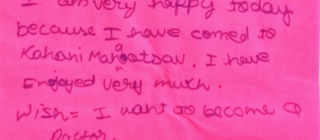 I am very happy today
because I have comed to
Kahani Mahootsav. I have
Enjoyed very much.
Wish = I want to become a
Doctor.